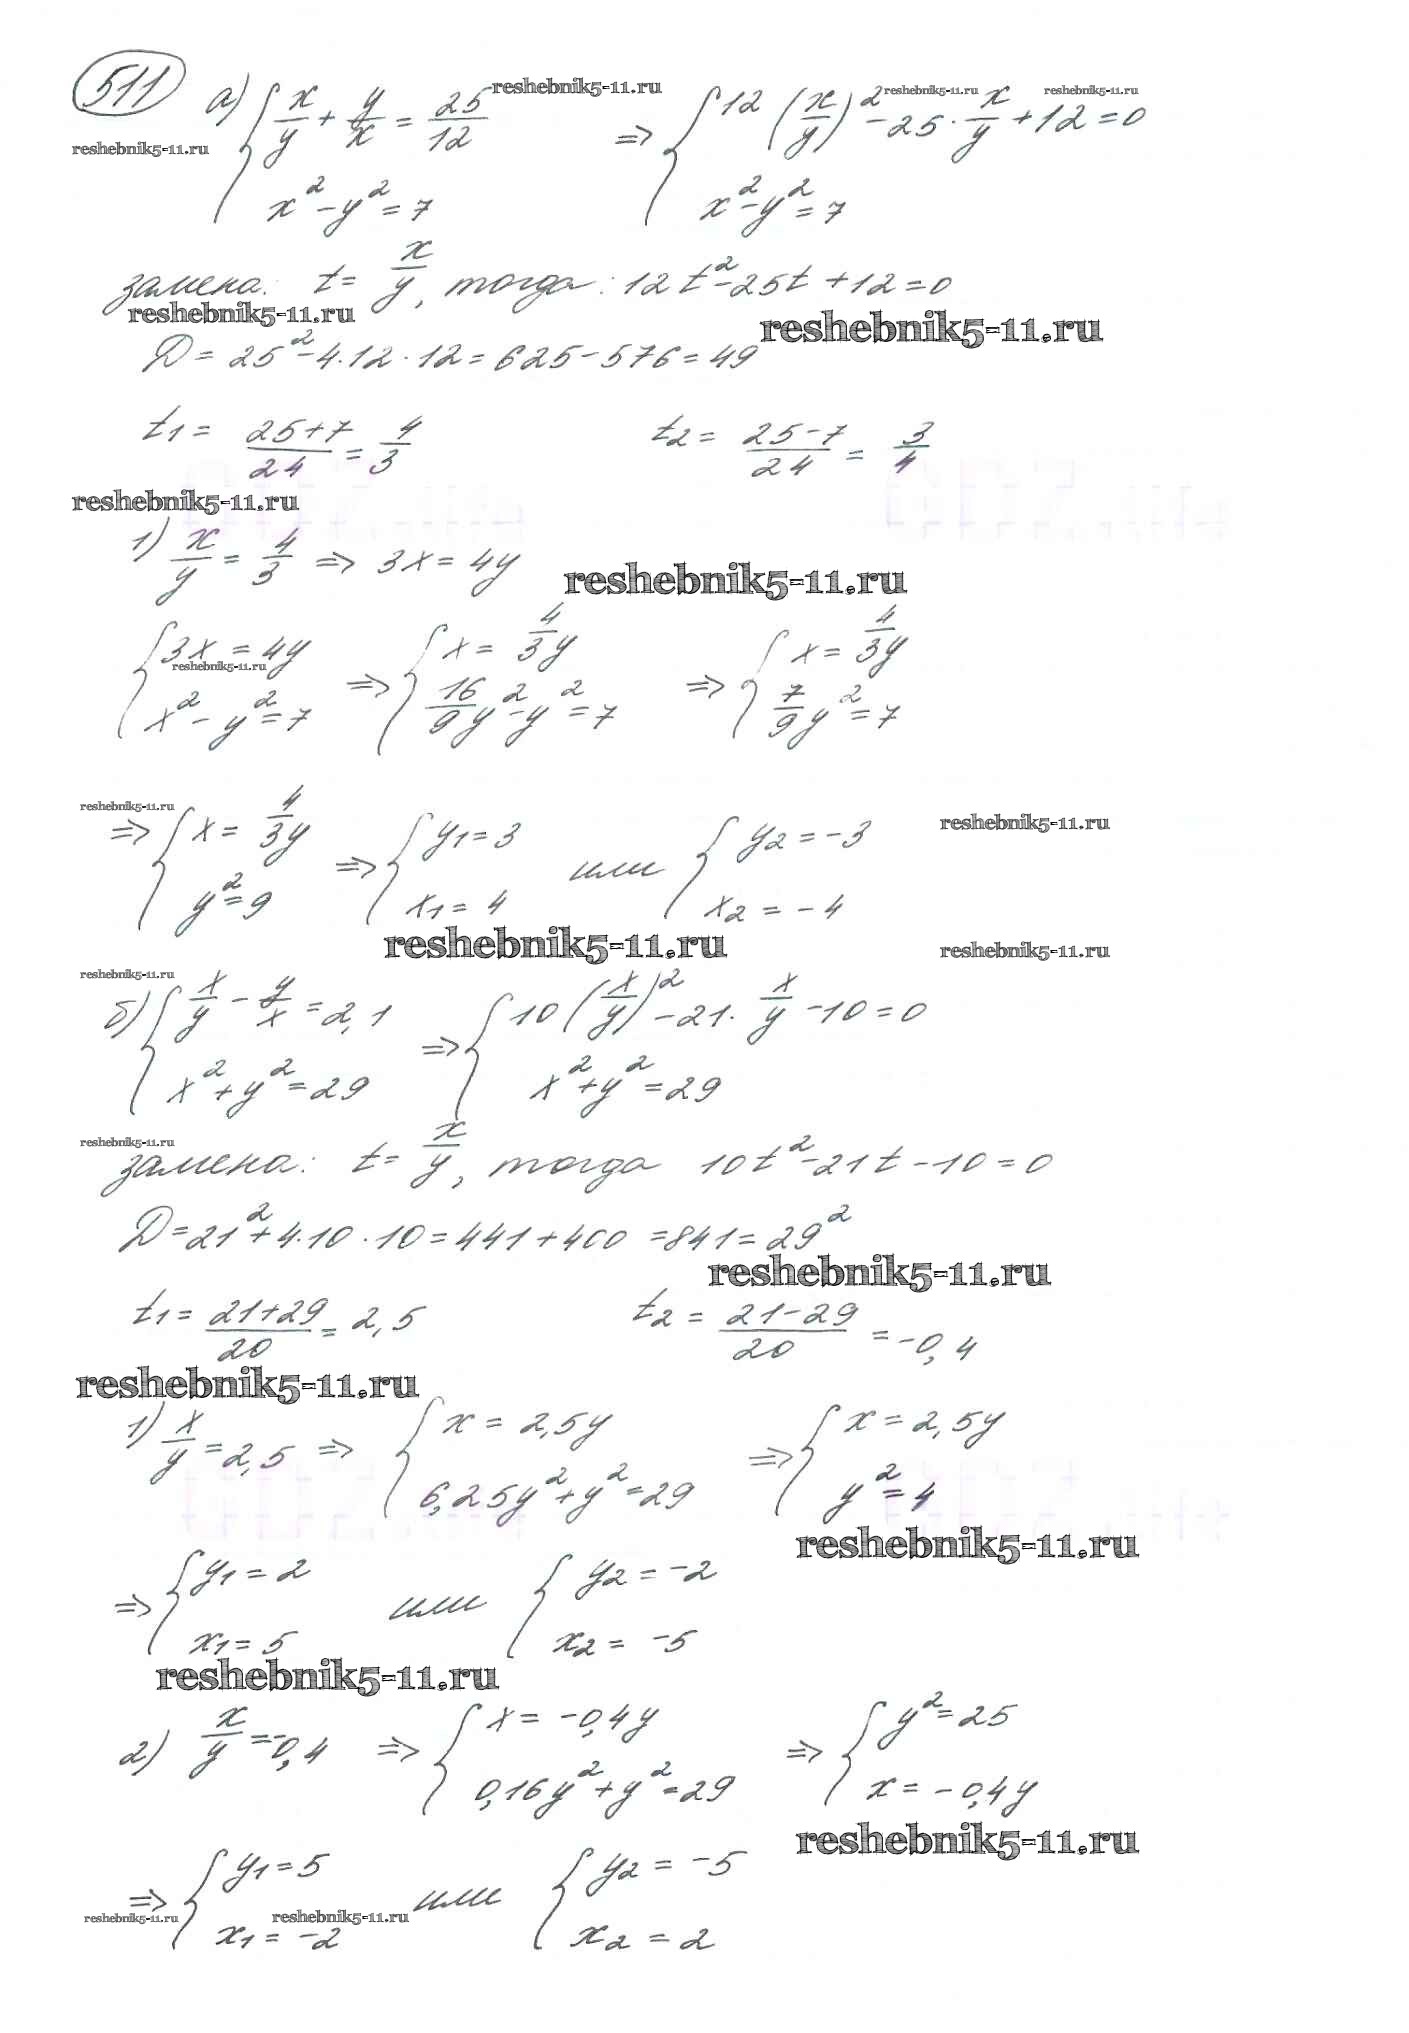 511
а) { x/y + y/x = 25/12 ⇒ { 12 (x/y)² - 25 · x/y + 12 = 0
reshebnik5-11.ru reshebnik5-11.ru reshebnik5-11.ru
reshebnik5-11.ru
x² - y² = 7 x² - y² = 7
замена: t = x/y, тогда: 12t² - 25t + 12 = 0
reshebnik5-11.ru reshebnik5-11.ru
D = 25² - 4·12·12 = 625 - 576 = 49
t1 = (25+7)/24 = 4/3 t2 = (25-7)/24 = 3/4
reshebnik5-11.ru
1) x/y = 4/3 ⇒ 3x = 4y
reshebnik5-11.ru
{ 3x = 4y ⇒ { x = 4/3 y ⇒ { x = 4/3 y
reshebnik5-11.ru
x² - y² = 7 16/9 y² - y² = 7 7/9 y² = 7
reshebnik5-11.ru
⇒ { x = 4/3 y ⇒ { y1 = 3 или { y2 = -3
reshebnik5-11.ru
y² = 9 x1 = 4 x2 = -4
reshebnik5-11.ru reshebnik5-11.ru
reshebnik5-11.ru
б) { x/y - y/x = 2,1 ⇒ { 10 (x/y)² - 21 · x/y - 10 = 0
x² + y² = 29 x² + y² = 29
reshebnik5-11.ru
замена: t = x/y, тогда 10t² - 21t - 10 = 0
D = 21² + 4·10·10 = 441 + 400 = 841 = 29²
reshebnik5-11.ru
t1 = (21+29)/20 = 2,5 t2 = (21-29)/20 = -0,4
reshebnik5-11.ru
1) x/y = 2,5 ⇒ { x = 2,5y ⇒ { x = 2,5y
6,25y² + y² = 29 y² = 4
reshebnik5-11.ru
⇒ { y1 = 2 или { y2 = -2
x1 = 5 x2 = -5
reshebnik5-11.ru
2) x/y = -0,4 ⇒ { x = -0,4y ⇒ { y² = 25
0,16y² + y² = 29 x = -0,4y
reshebnik5-11.ru
⇒ { y1 = 5 или { y2 = -5
reshebnik5-11.ru reshebnik5-11.ru
x1 = -2 x2 = 2